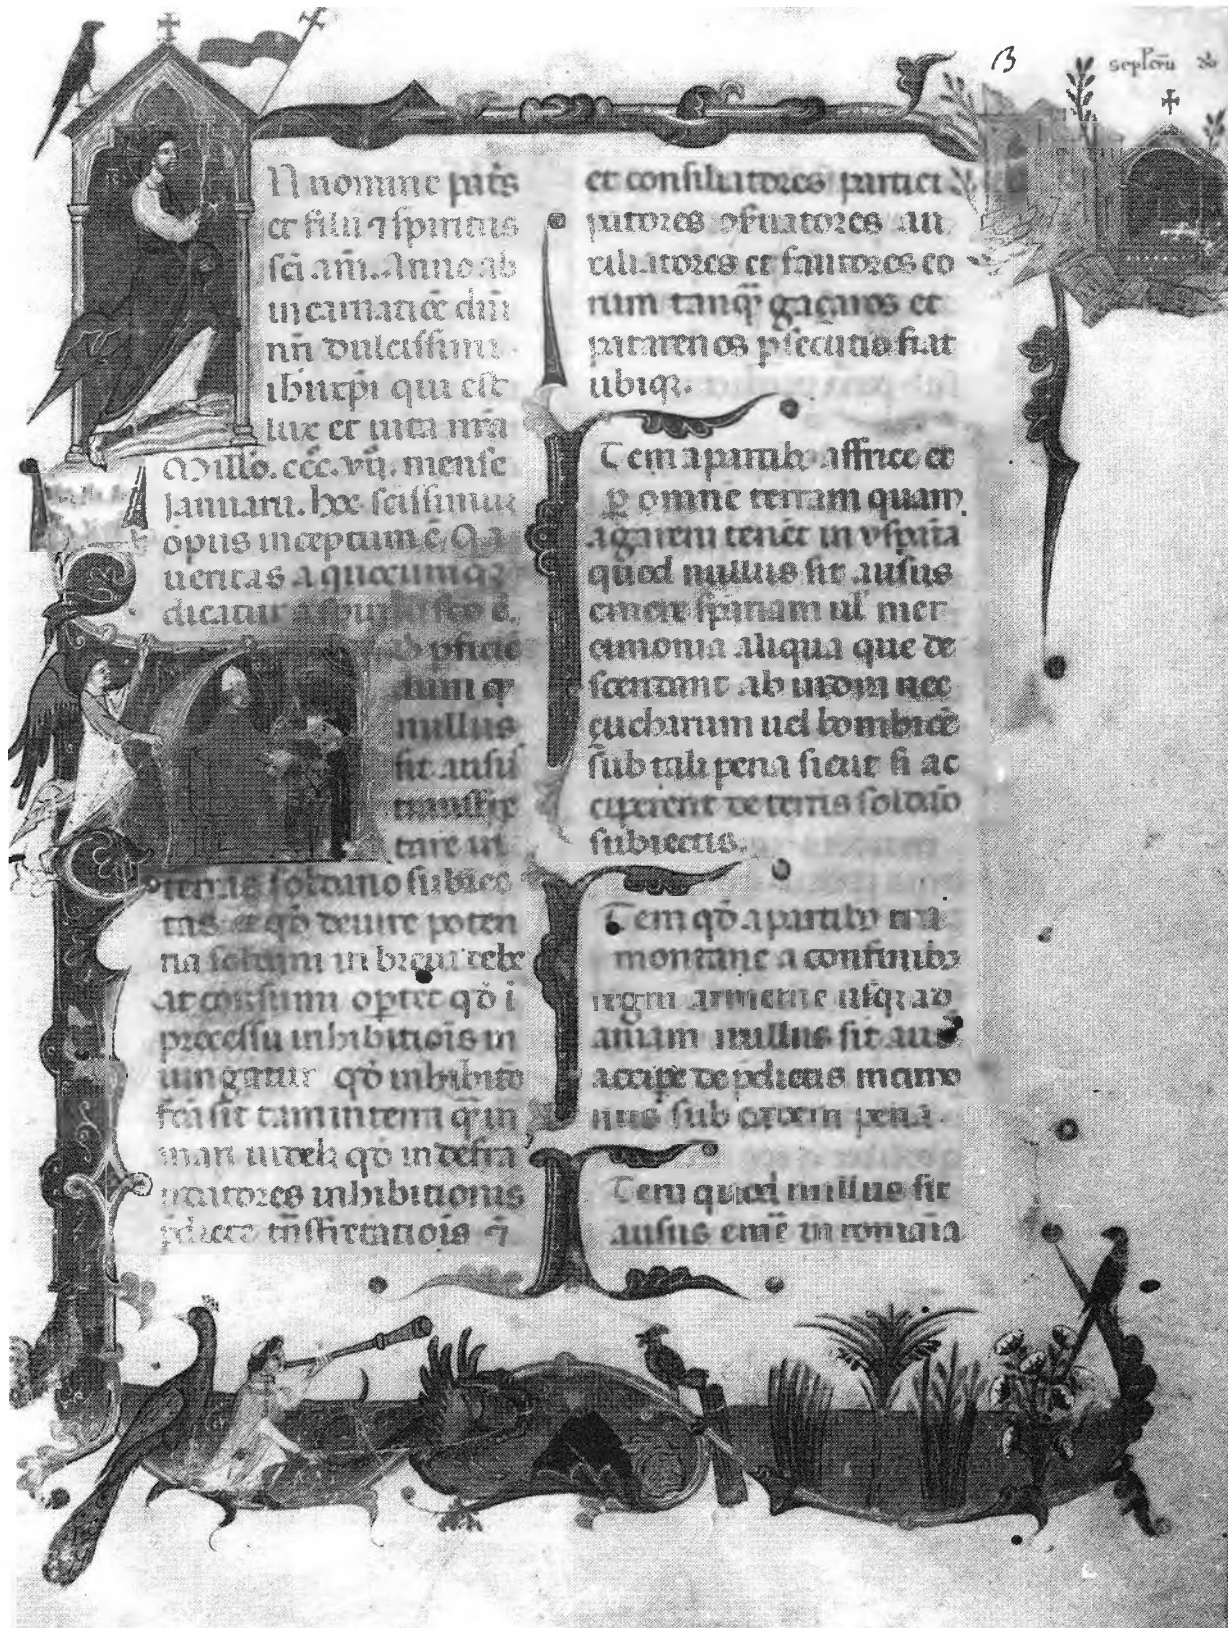 septem̄
N nomine pat̄s
et filii ⁊ spiritus
sc̄i am̄. Anno ab
incarnatiōe dn̄i
nr̄i dulcissimi
ih̄u xp̄i qui est
lux et uita nr̄a
Millo. ccc. vii. mense
Januarii. hoc sc̄issimum
opus inceptum ē. Q a
ueritas a quocumqꝫ
dicatur a spiritu sc̄o ē.
d pficiē
dum qͥ
nullus
sit ausus
transfre
tare in
terris soldano subiec
tas et qd̄ deuire poten
tia soldani in breui debe
at consumi oportet qd̄ i
processu inhibitiōis in
iungatur qd̄ inhibitō
fc̄a sit tam in terra qͣ in
mari uidelꝫ qd̄ indefra
udatores inhibitionis
p̄dicte tn̄sfretatiōis ⁊
et consiliatores partici
patores ꝯseruatores au
xiliatores et fautores eo
rum tanqͣ gaçaros et
patarenos ꝑsecutio fiat
ubiqꝫ.
Item a partibꝫ affrice et
ꝑ omnē terram quam
agareni tenēt in yspania
quod nullus sit ausus
emere spinam ul' mer
cimonia aliqua que de
scendant ab india nec
cucharum uel bombicē
sub tali pena sicut si ac
ciperent de terris soldano
subiectis.
Item qd̄ a partibꝫ tra
montane a confinibꝫ
regni armenie usqꝫ ad
aniam nullus sit ausꝫ
accipe de p̄dictis mercimo
niis sub eadem pena.
Item quod nullus sit
ausus emē̄ in romania